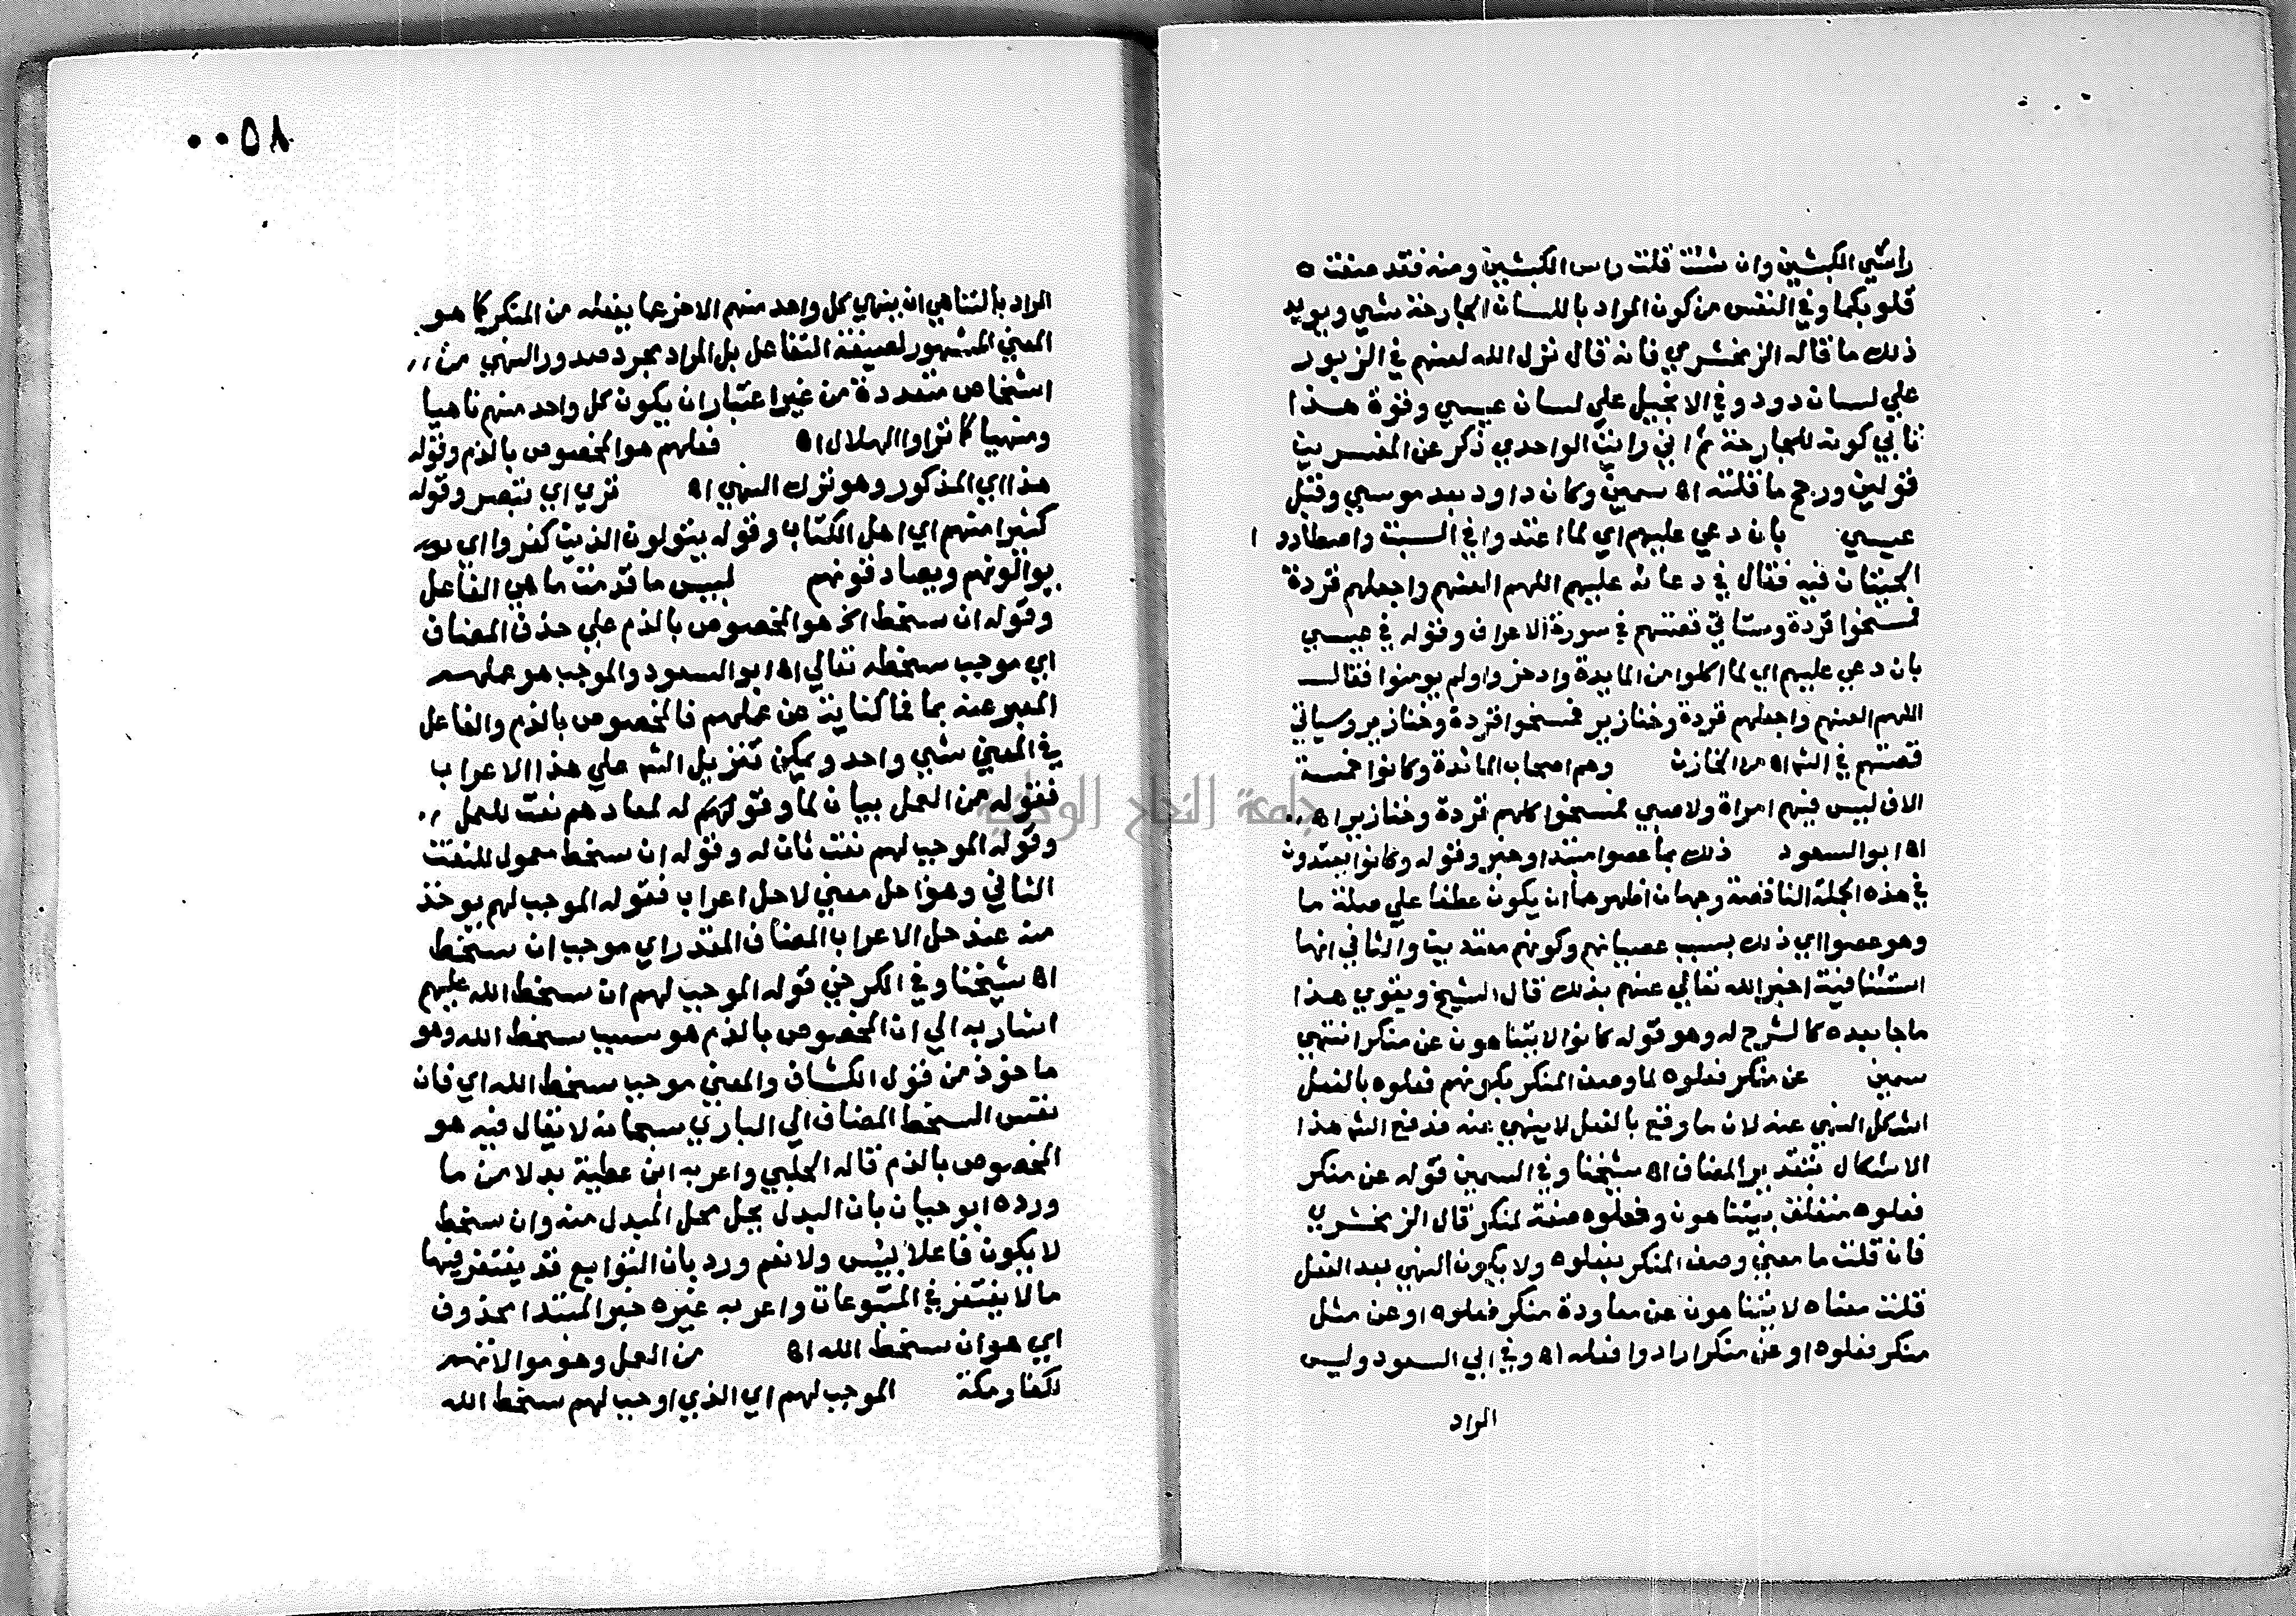 راسي الكبشين وان شئت قلت راس الكبشين ومنه فقد صغت ه
قلوبكما وفي النفس من كون المراد باللسان الجارحة شي ويويد
ذلك ما قاله الزمخشري فانه قال نزل الله لعنهم في الزبور
علي لسان دود وفي الانجيل علي لسان عيسي وقوة هذا
تابي كونه للجارحة ثم اني رايت الواحدي ذكر عن المفسرين
قولين ورجح ما قلته اه سمين وكان داود بعد موسي وقبل
عيسي بان دعي عليهم اي لما اعتدوا في السبت واصطادوا
الحيتان فيه فقال في دعائه عليهم اللهم العنهم واجعلهم قردة
فمسخوا قردة وستاتي قصتهم في سورة الاعراف وقوله في عيسي
بان دعي عليهم اي لما اكلوا من المايدة وادخروا ولم يومنوا فقال
اللهم العنهم واجعلهم قردة وخنازير فمسخوا قردة وخنازير وسياتي
قصتهم في الشر اه من الخازن وهم اصحاب المائدة وكانوا خمسة
الاف ليس فيهم امراة ولا صبي فمسخوا كلهم قردة وخنازير اه
اه ابو السعود ذلك بما عصوا مبتدا وخبر وقوله وكانوا يعتدون
في هذه الجملة الناقصة وجهان اظهرهما ان يكون عطفا علي صلة ما
وهو عصوا اي ذلك بسبب عصيانهم وكونهم معتدين والثاني انها
استئنافية اخبر الله تعالي عنهم بذلك قال الشيخ ويقوي هذا
ما جا بعده كالشرح له وهو قوله كانوا لا يتناهون عن منكر انتهي
سمين عن منكر فعلوه لما وصف المنكر بكونهم فعلوه بالفعل
اشكل النهي عنه لان ما وقع بالفعل لا ينهي عنه فدفع الشر هذا
الاشكال بتقدير المضاف اه شيخنا وفي السمين قوله عن منكر
فعلوه متعلق بيتناهون وفعلوه صفة لمنكر قال الزمخشري
فان قلت ما معني وصف المنكر بفعلوه ولا يكون النهي بعد الفعل
قلت معناه لا يتناهون عن معاودة منكر فعلوه او عن مثل
منكر فعلوه او عن منكر ارادوا فعله اه وفي ابي السعود وليس
المراد
٠٠٥٨
المراد بالتناهي ان ينهي كل واحد منهم الاخر عما يفعله من المنكر كما هو
المعني المشهور لصيغة التفاعل بل المراد مجرد صدور النهي من
اشخاص متعددة من غير اعتبار ان يكون كل واحد منهم ناهيا
ومنهيا كما تراوا الهلال اه فعلهم هو المخصوص بالذم وقوله
هذا اي المذكور وهو ترك النهي اه تري اي تبصر وقوله
كثيرا منهم اي اهل الكتاب وقوله يتولون الذين كفروا اي
يوالونهم ويصادقونهم لبيس ما قدمت ما هي الفاعل
وقوله ان سخط الخ هو المخصوص بالذم علي حذف المضاف
اي موجب سخطه تعالي اه ابو السعود والموجب هو عملهم
المعبر عنه بما فما كناية عن عملهم فالمخصوص بالذم والفاعل
في المعني شي واحد ويمكن تنزيل الشر علي هذا الاعراب
فقوله من العمل بيان لما وقولهم له لمعادهم نعت للعمل
وقوله الموجب لهم نعت ثان له وقوله ان سخط معمول للنعت
الثاني وهو حل معني لا حل اعراب فقوله الموجب لهم يوخذ
منه عند حل الاعراب المضاف المقدر اي موجب ان سخط
اه شيخنا وفي الكرخي قوله الموجب لهم ان سخط الله عليهم
اشار به الي ان المخصوص بالذم هو سبب سخط الله وهو
ماخوذ من قول الكشاف والمعني موجب سخط الله اي فان
نفس السخط المضاف الي الباري سبحانه لا يقال فيه هو
المخصوص بالذم قاله الحلبي واعربه ابن عطية بدلا من ما
ورده ابو حيان بان البدل يحل محل المبدل منه وان سخط
لا يكون فاعلا لبيس ولا نعم ورد بان التوابع قد يغتفر فيها
ما لا يغتفر في المتبوعات واعربه غيره خبر المبتدا محذوف
اي هو ان سخط الله اه من العمل وهو موالاتهم
لكفار مكة الموجب لهم اي الذي اوجب لهم سخط الله
جامعة النجاح الوطنية